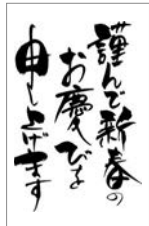 謹んで新春の
お慶びを
申し上げます